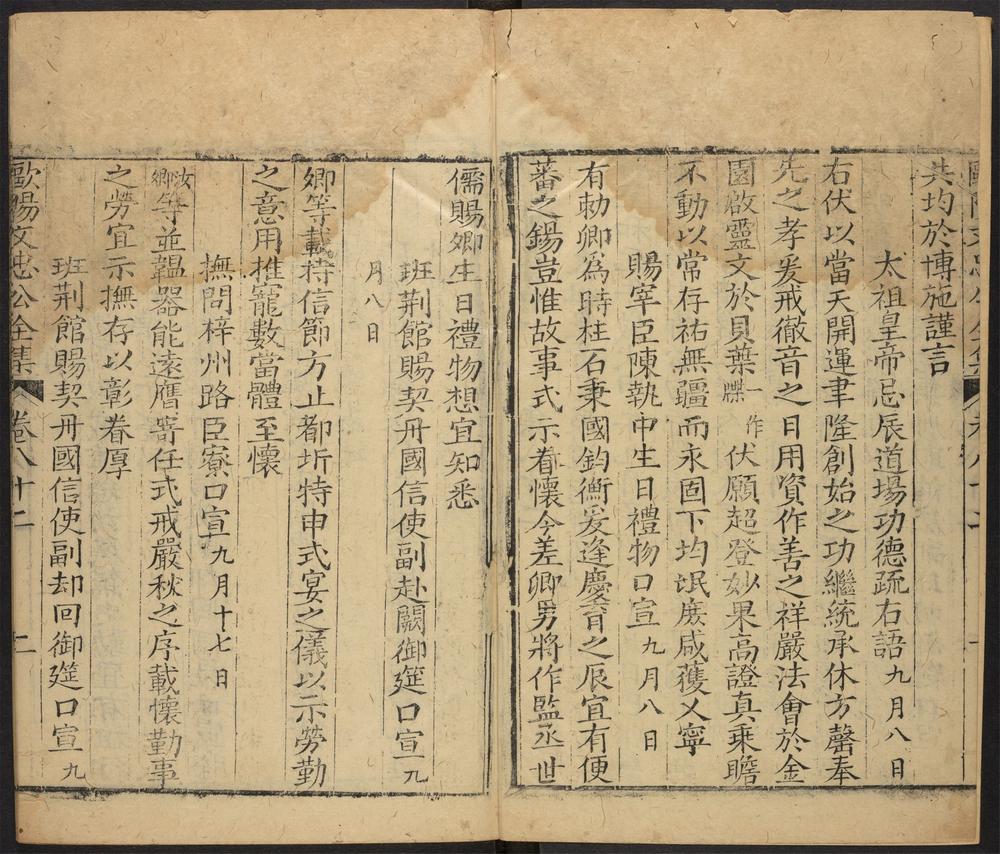 共均於博施謹言
太祖皇帝忌辰道場功德疏右語九月八日
右伏以當天開運聿隆創始之功繼統承休方罄奉
先之孝爰戒徹音之日用資作善之祥嚴法會於金
園啟靈文於貝葉一作牒伏願超登妙果高證真乘瞻
不動以常存祐無疆而永固下均氓庶咸獲乂寧
賜宰臣陳執中生日禮物口宣九月八日
有勅卿為時柱石秉國鈞衡爰逢慶育之辰宜有便
蕃之錫豈惟故事式示眷懷今差卿男將作監丞世
儒賜卿生日禮物想宜知悉
班荆館賜契丹國信使副赴闕御筵口宣九
月八日
卿等載持信節方止都圻特申式宴之儀以示勞勤
之意用推寵數當體至懷
撫問梓州路臣寮口宣九月十七日
汝卿等並韞器能遠膺寄任式戒嚴秋之序載懷勤事
之勞宜示撫存以彰眷厚
班荆館賜契丹國信使副却回御筵口宣九
歐陽文忠公全集 卷八十二 二